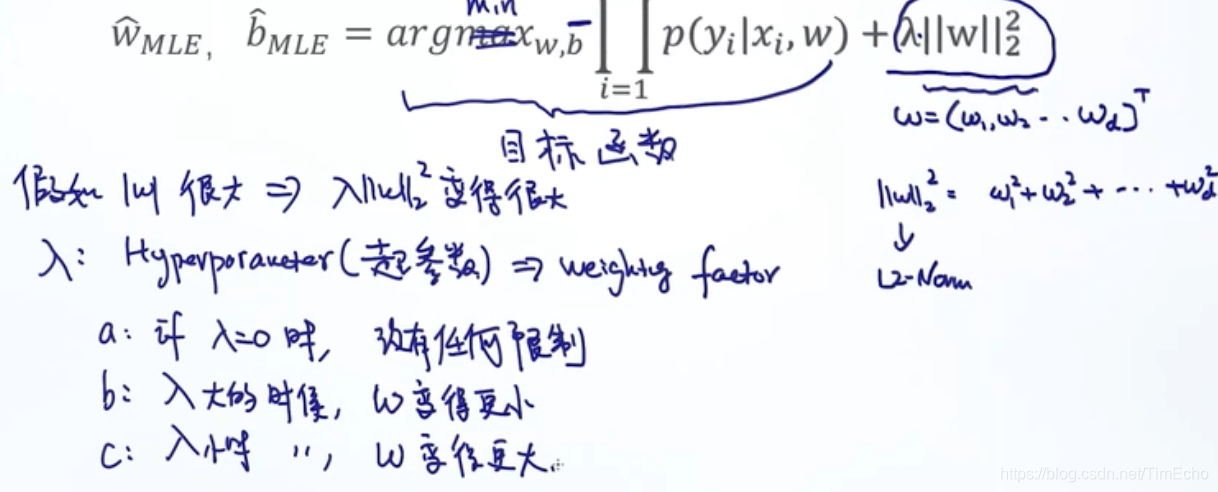 min
ŵ_MLE, b̂_MLE = argmax_w,b - ∏_i=1 p(y_i|x_i, w) + λ||w||₂²
目标函数
w=(w₁,w₂ - ·· w_d)^T
假如 |w| 很大 => λ||w||₂² 变得很大
||w||₂² = w₁²+w₂²+ ··· +w_d²
↓
λ: Hyperporameter(超参数) => weighing factor
L2-Norm
a: if λ=0 时, 没有任何限制
b: λ大的时候, w变得更小
c: λ小时 ,, , w变得更大.
https://blog.csdn.net/TimEcho